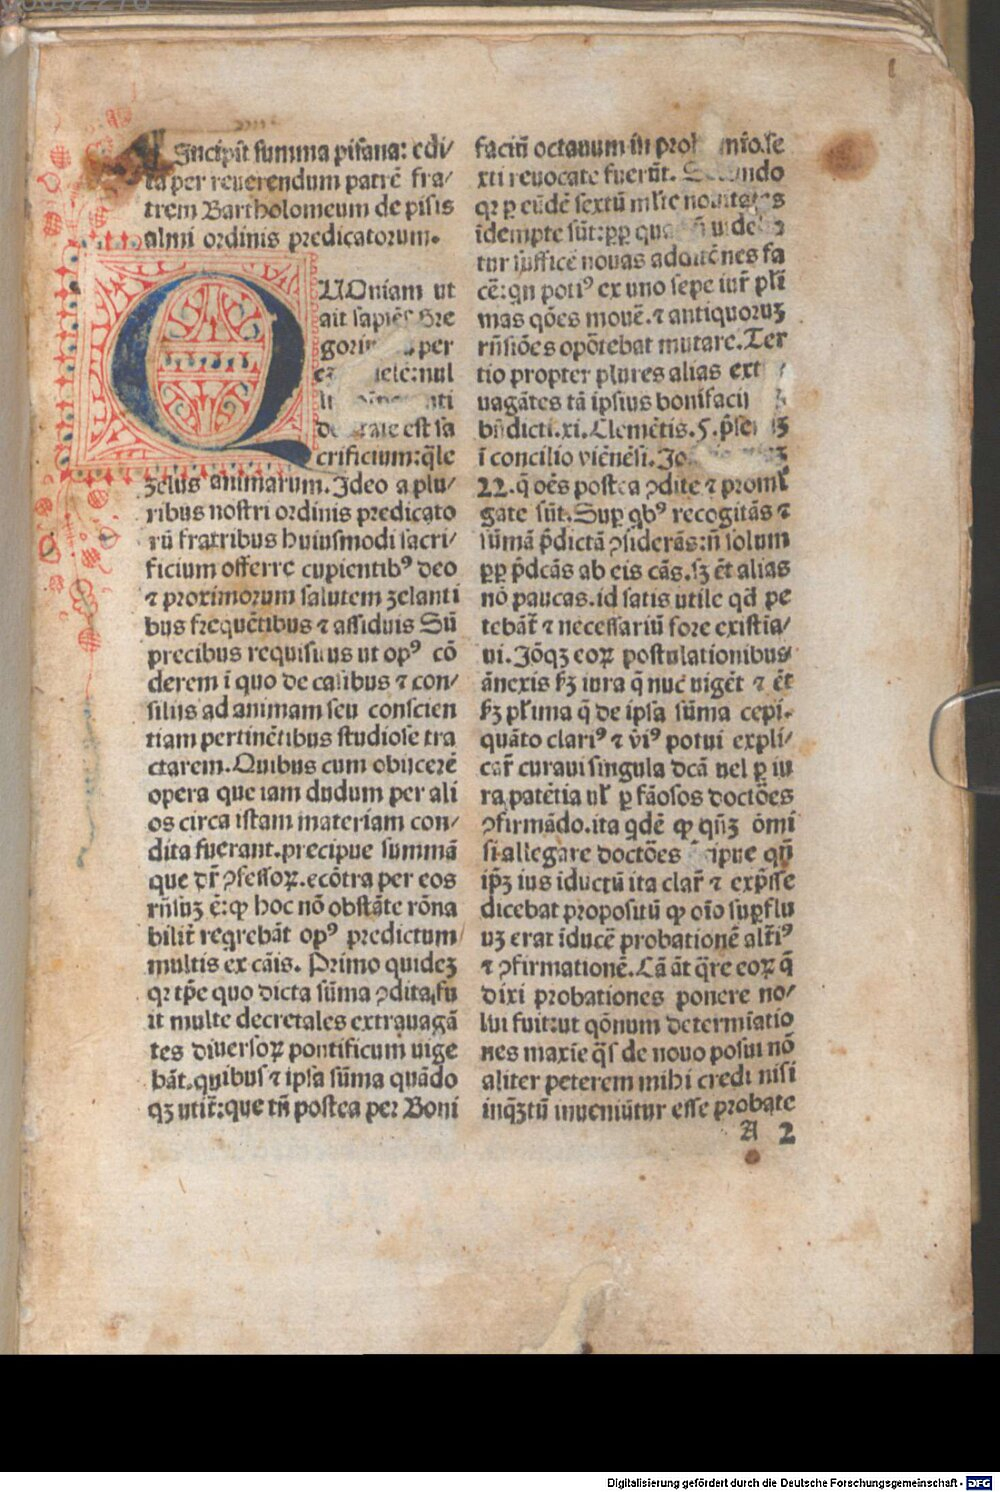 Incipit summa pisana: edi/
ta per reuerendum patrē fra/
trem Bartholomeum de pisis
almi ordinis predicatorum.
QUOniam ut
ait sapiēs Gre
per
nul
est sa
crificium: q̄le
zelus animarum. Ideo a plu/
ribus nostri ordinis predicato
rū fratribus huiusmodi sacri/
ficium offerre cupientibꝰ deo
⁊ proximorum salutem zelanti
bus frequētibus ⁊ assiduis Sū
precibus requisitus ut opꝰ cō
derem ī quo de casibus ⁊ con/
siliis ad animam seu conscien
tiam pertinētibus studiose tra
ctarem. Quibus cum obiicerē
opera que iam dudum per ali
os circa istam materiam con/
dita fuerant. precipue summā
que dr̄ ꝯfessoꝝ. ecōtra per eos
rn̄suꝫ ē: ꝙ hoc nō obstāte rōna
bilit̄ reqrebāt opꝰ predictum
multis ex cāis. Primo quideꝫ
qꝛ tp̄e quo dicta sūma ꝯdita, fu
it multe decretales extrauagā
tes diuersoꝝ pontificum uige
bāt. quibus ⁊ ipsa sūma quādo
qꝫ utit̄: que tn̄ postea per Boni
faciū octauum in pro mio. se
xti reuocate fuerūt.
qꝛ ꝑ eūdē sextū ml̄te nouitates
īdempte sūt: ꝓp
tur suffice nouas additōnes fa
cē: qn potiꝰ ex uno sepe iur̄ pl̄i
mas qōes mouē. ⁊ antiquoruꝫ
rn̄siōes opōtebat mutare. Ter
tio propter plures alias ext
uagātes tā ipsius bonifacii
bn̄dicti. xi. Clemētis. 5.
ī concilio viēnēsi. Jo
22. q̄ oēs postea ꝯdite ⁊ proml̄
gate sūt. Sup qbꝰ recogitās ⁊
sūmā p̄dictā ꝯsiderās: n̄ solum
ꝓp p̄dcās ab eis cās. sꝫ ēt alias
nō paucas. id satis utile qd̄ pe
tebāt̄ ⁊ necessariū fore existia/
ui. Jōqꝫ eoꝝ postulationibus
ānexis ẜꝫ iura q̄ nuc uigēt ⁊ ēt
ẜꝫ pl̄ima q̄ de ipsa sūma cepi.
quāto clariꝰ ⁊ v̄iꝰ potui expli/
car̄ curaui singula dcā uel ꝑ iu
ra patētia ul̄ ꝑ fāosos doctōes
ꝯfirmādo. ita qdē ꝙ qn̄ꝫ ōmi
si allegare doctōes cipue qn̄
ip̄ꝫ ius īductū ita clar̄ ⁊ exp̄sse
dicebat propositū ꝙ oīo sup̄flu
uꝫ erat īducē probationē alt̄iꝰ
⁊ ꝯfirmationē. Cā āt q̄re eoꝝ q̄
dixi probationes ponere no/
lui fuit: ut qōnum determīatio
nes maxīe q̄s de nouo posui nō
aliter peterem mihi credi nisi
inqꝫtū inueniūtur esse probate
A 2
Digitalisierung gefördert durch die Deutsche Forschungsgemeinschaft - DFG